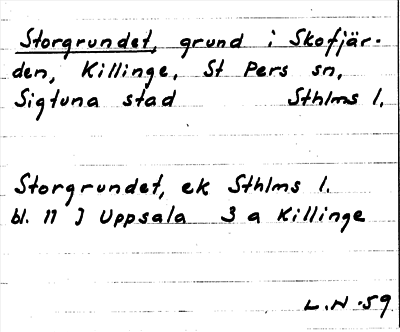 Storgrundet, grund i Skofjär-
den, Killinge, St Pers sn,
Sigtuna stad Sthlms l.
Storgrundet, ek Sthlms l.
bl. 11 J Uppsala 3 a Killinge
L.N.-59